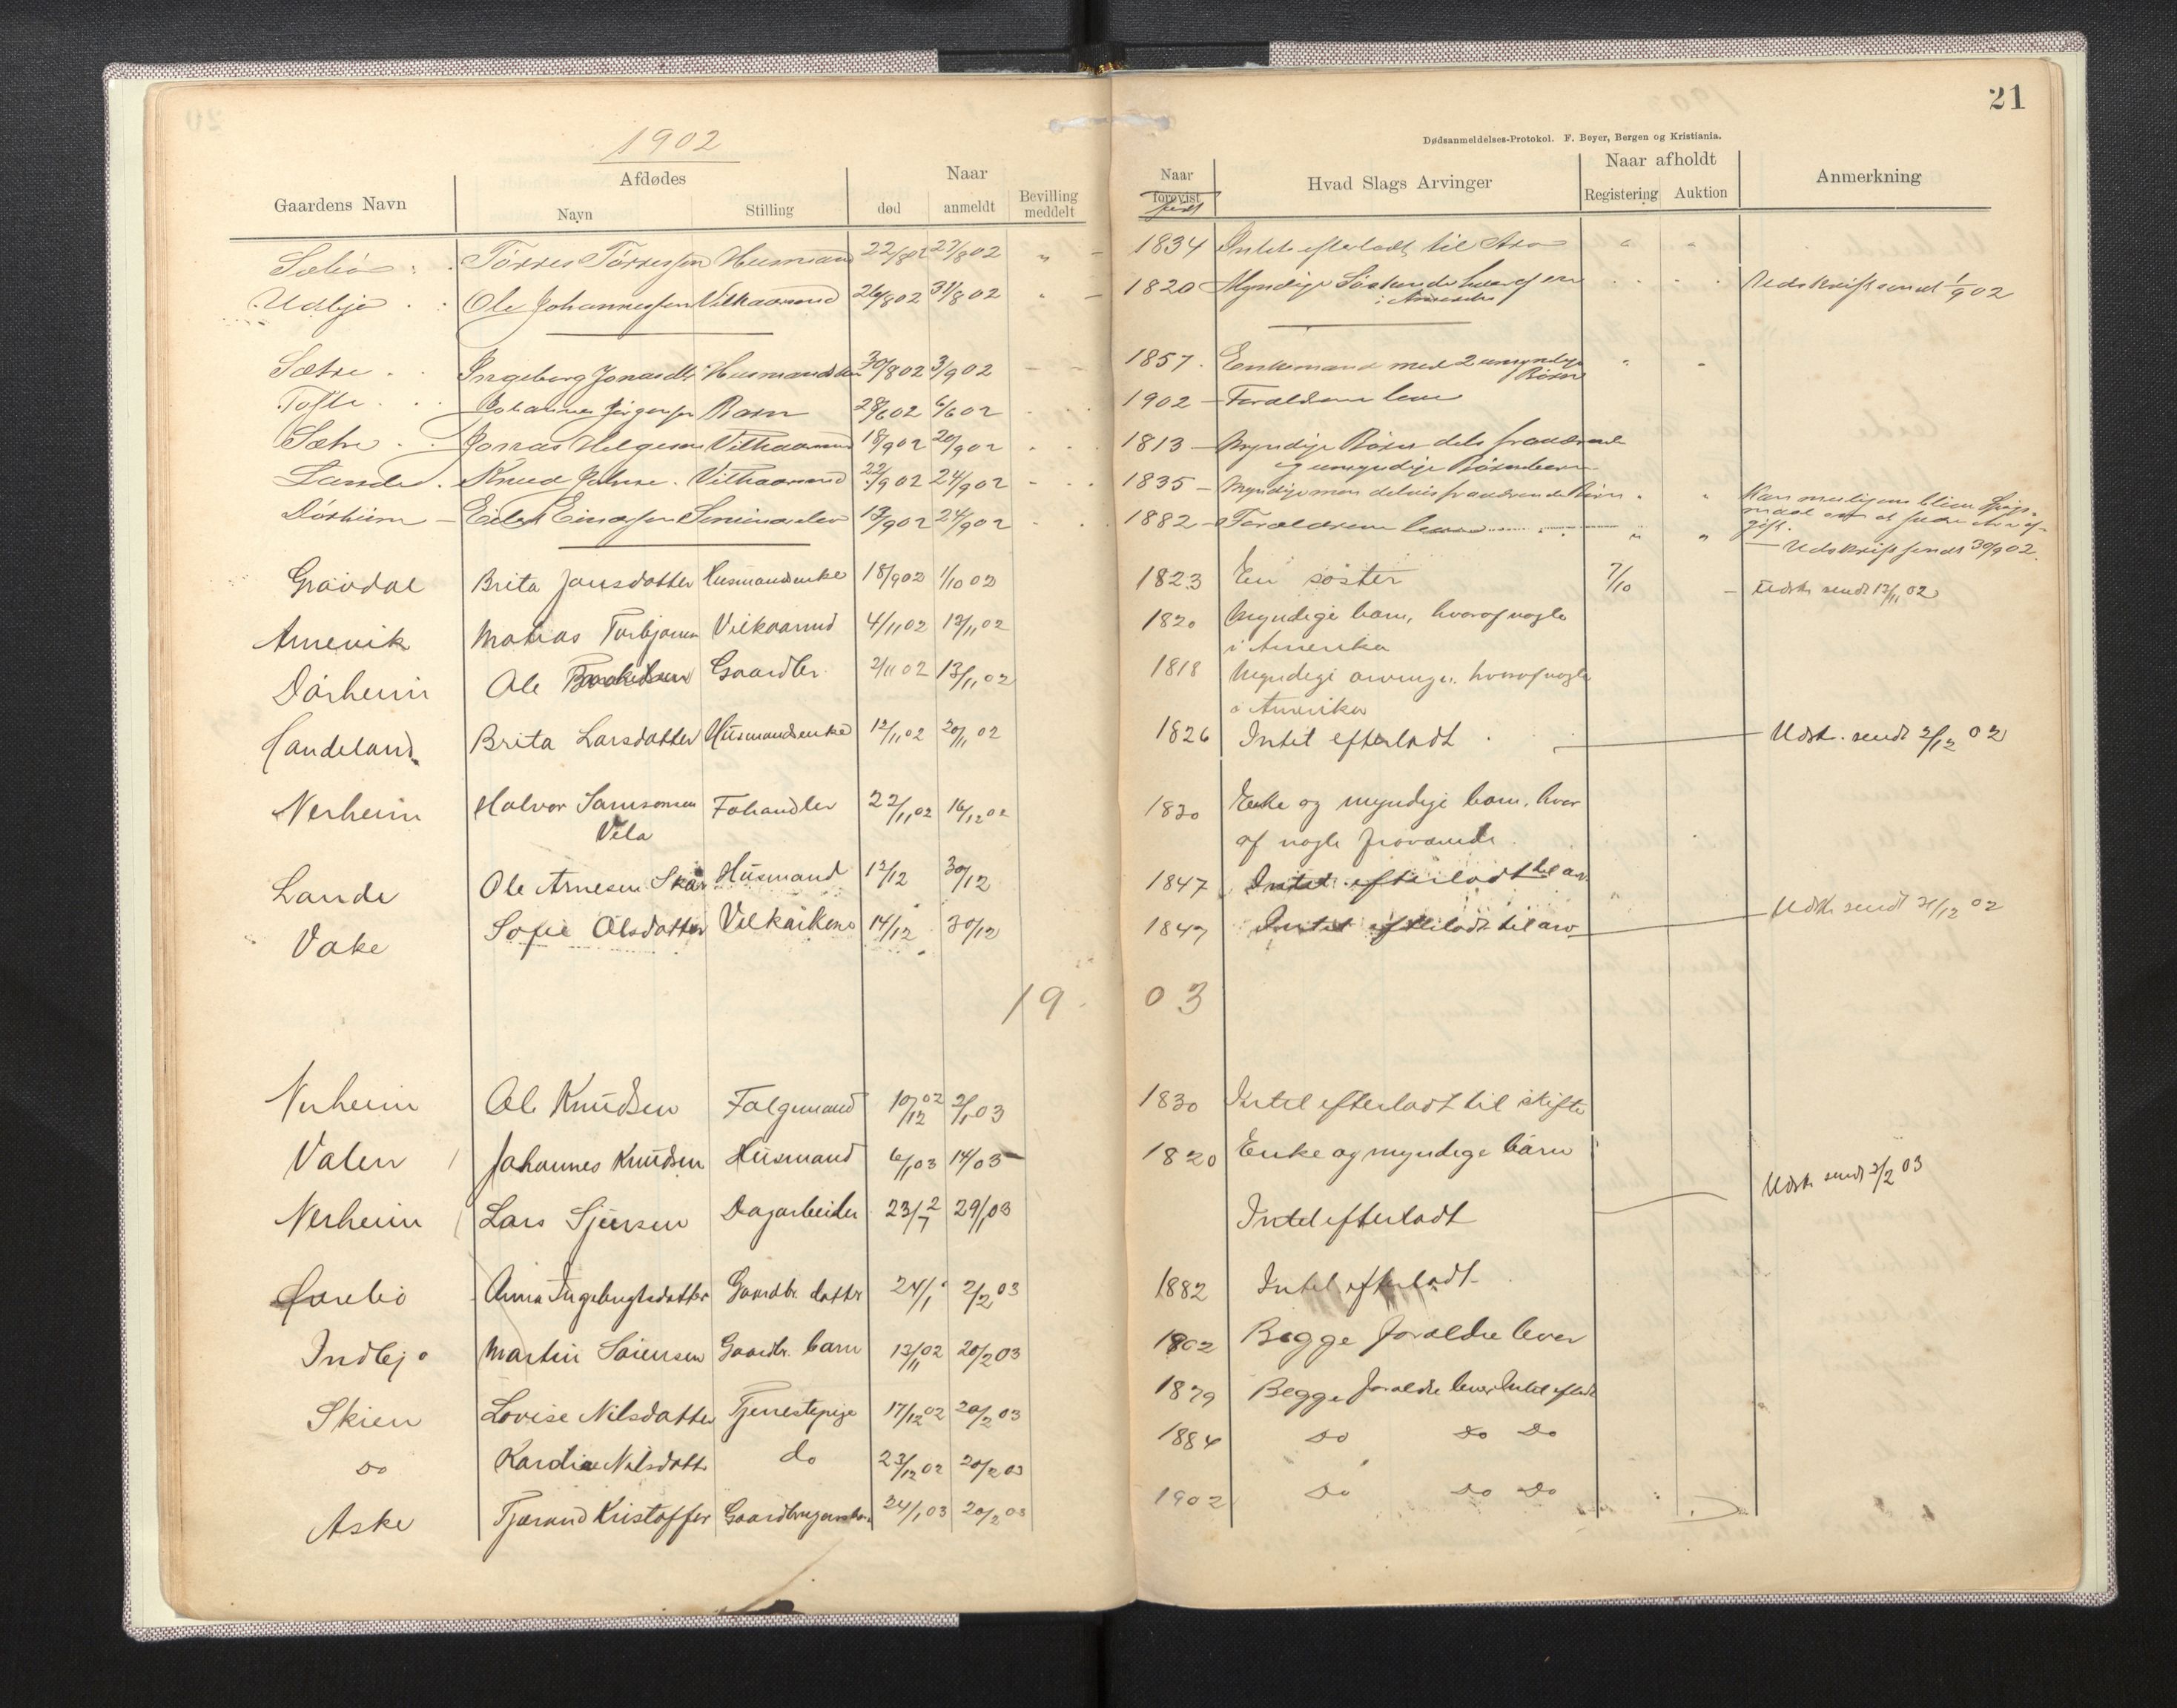 21
1902
Dødsanmeldelses-Protokol. F. Beyer, Bergen og Kristiania.
Gaardens Navn Afdødes Navn Stilling Naar død anmeldt Bevilling meddelt Naar forevist født Hvad Slags Arvinger Naar afholdt Registering Auktion Anmerkning
Sæbø Tørres Tørressen Husmand 22/8 02 27/8 02 " 1834 Intet efterladt til Arv " "
Udbjo Ole Johannessen Vilkaarmd 26/8 02 31/8 02 1820 Myndige Søskende hvoraf en Udskrift sendt 1/9 02
i Amerika
Sætre Ingeborg Jonasdtr Husmandsken 30/8 02 3/9 02 1857 Enkemand med 2 umyndige
Børn
Tofte Johannes Jørgensen Barn 28/6 02 6/6 02 1902 Forældrene lever
Sætre Jonas Helgesen Vilkaarmd 18/9 02 20/9 02 1813 Myndige Børn dels fraværende
og umyndige Børnebørn
Lande Knud Johnse. Vilkaarmd 22/9 02 24/9 02 1835 Myndige men delvis fraværende Børn Kan muligens blive spørs-
Dørheim Eilef Einarsen Seminarelev 13/9 02 24/9 02 1882 Forældrene lever " " maal om at svare Arveaf-
gift.
Udskrift sendt 30/9 02.
Gravdal Brita Jonsdatter Husmandsenke 18/9 02 1/10 02 1823 En søster 7/10 Udskr sendt 13/11 02
Arnevik Matias Torbjørnsen Vilkaarmd 4/11 02 12/11 02 1820 Myndige barn, hvoraf nogle
i Amerika
Dørheim Ole Gaardbr. 2/11 02 13/11 02 1818 Myndige arvinger, hvoraf nogle
i Amerika
Handeland Brita Larsdatter Husmandsenke 12/11 02 20/11 02 1826 Intet efterladt Udsk. sendt 2/12 02
Nerheim Halvor Samsonsen Fehandler 22/11 02 16/12 02 1830 Enke og myndige barn, hvor
Vela af nogle fraværende
Lande Ole Arnesen Skår Husmand 12/12 30/12 1847 Intet efterladt til arv
Vake Sofie Olsdatter Vilkårkone 14/12 30/12 1847 Intet efterladt til arv Udsk sendt 31/12 02
1903
Nerheim Ole Knudsen Følgemand 10/12 02 2/1 03 1830 Intet efterladt til skifte
Valen Johannes Knudsen Husmand 6/1 03 14/03 1820 Enke og myndige børn
Nerheim Lars Sjursen Dagarbeider 29/1 03 Intet efterladt Udsk sendt 3/2 03
Anna Ingebrigtsdatter Gaardbr. datter 24/1 2/2 03 1882 Intet efterladt
Indbjo Martin Sørensen Gaardbr. barn 13/11 02 20/2 03 1902 Begge forældre lever
Skien Lovise Nilsdatter Tjenestepige 17/12 02 20/2 03 1879 Begge forældre lever Intet efterladt
Do Nilsdatter do 23/12 02 20/2 03 1884 Do Do Do
Aske Tjerand Kristoffer Gaardbrugersbarn 24/1 03 20/2 03 1902 Do Do Do